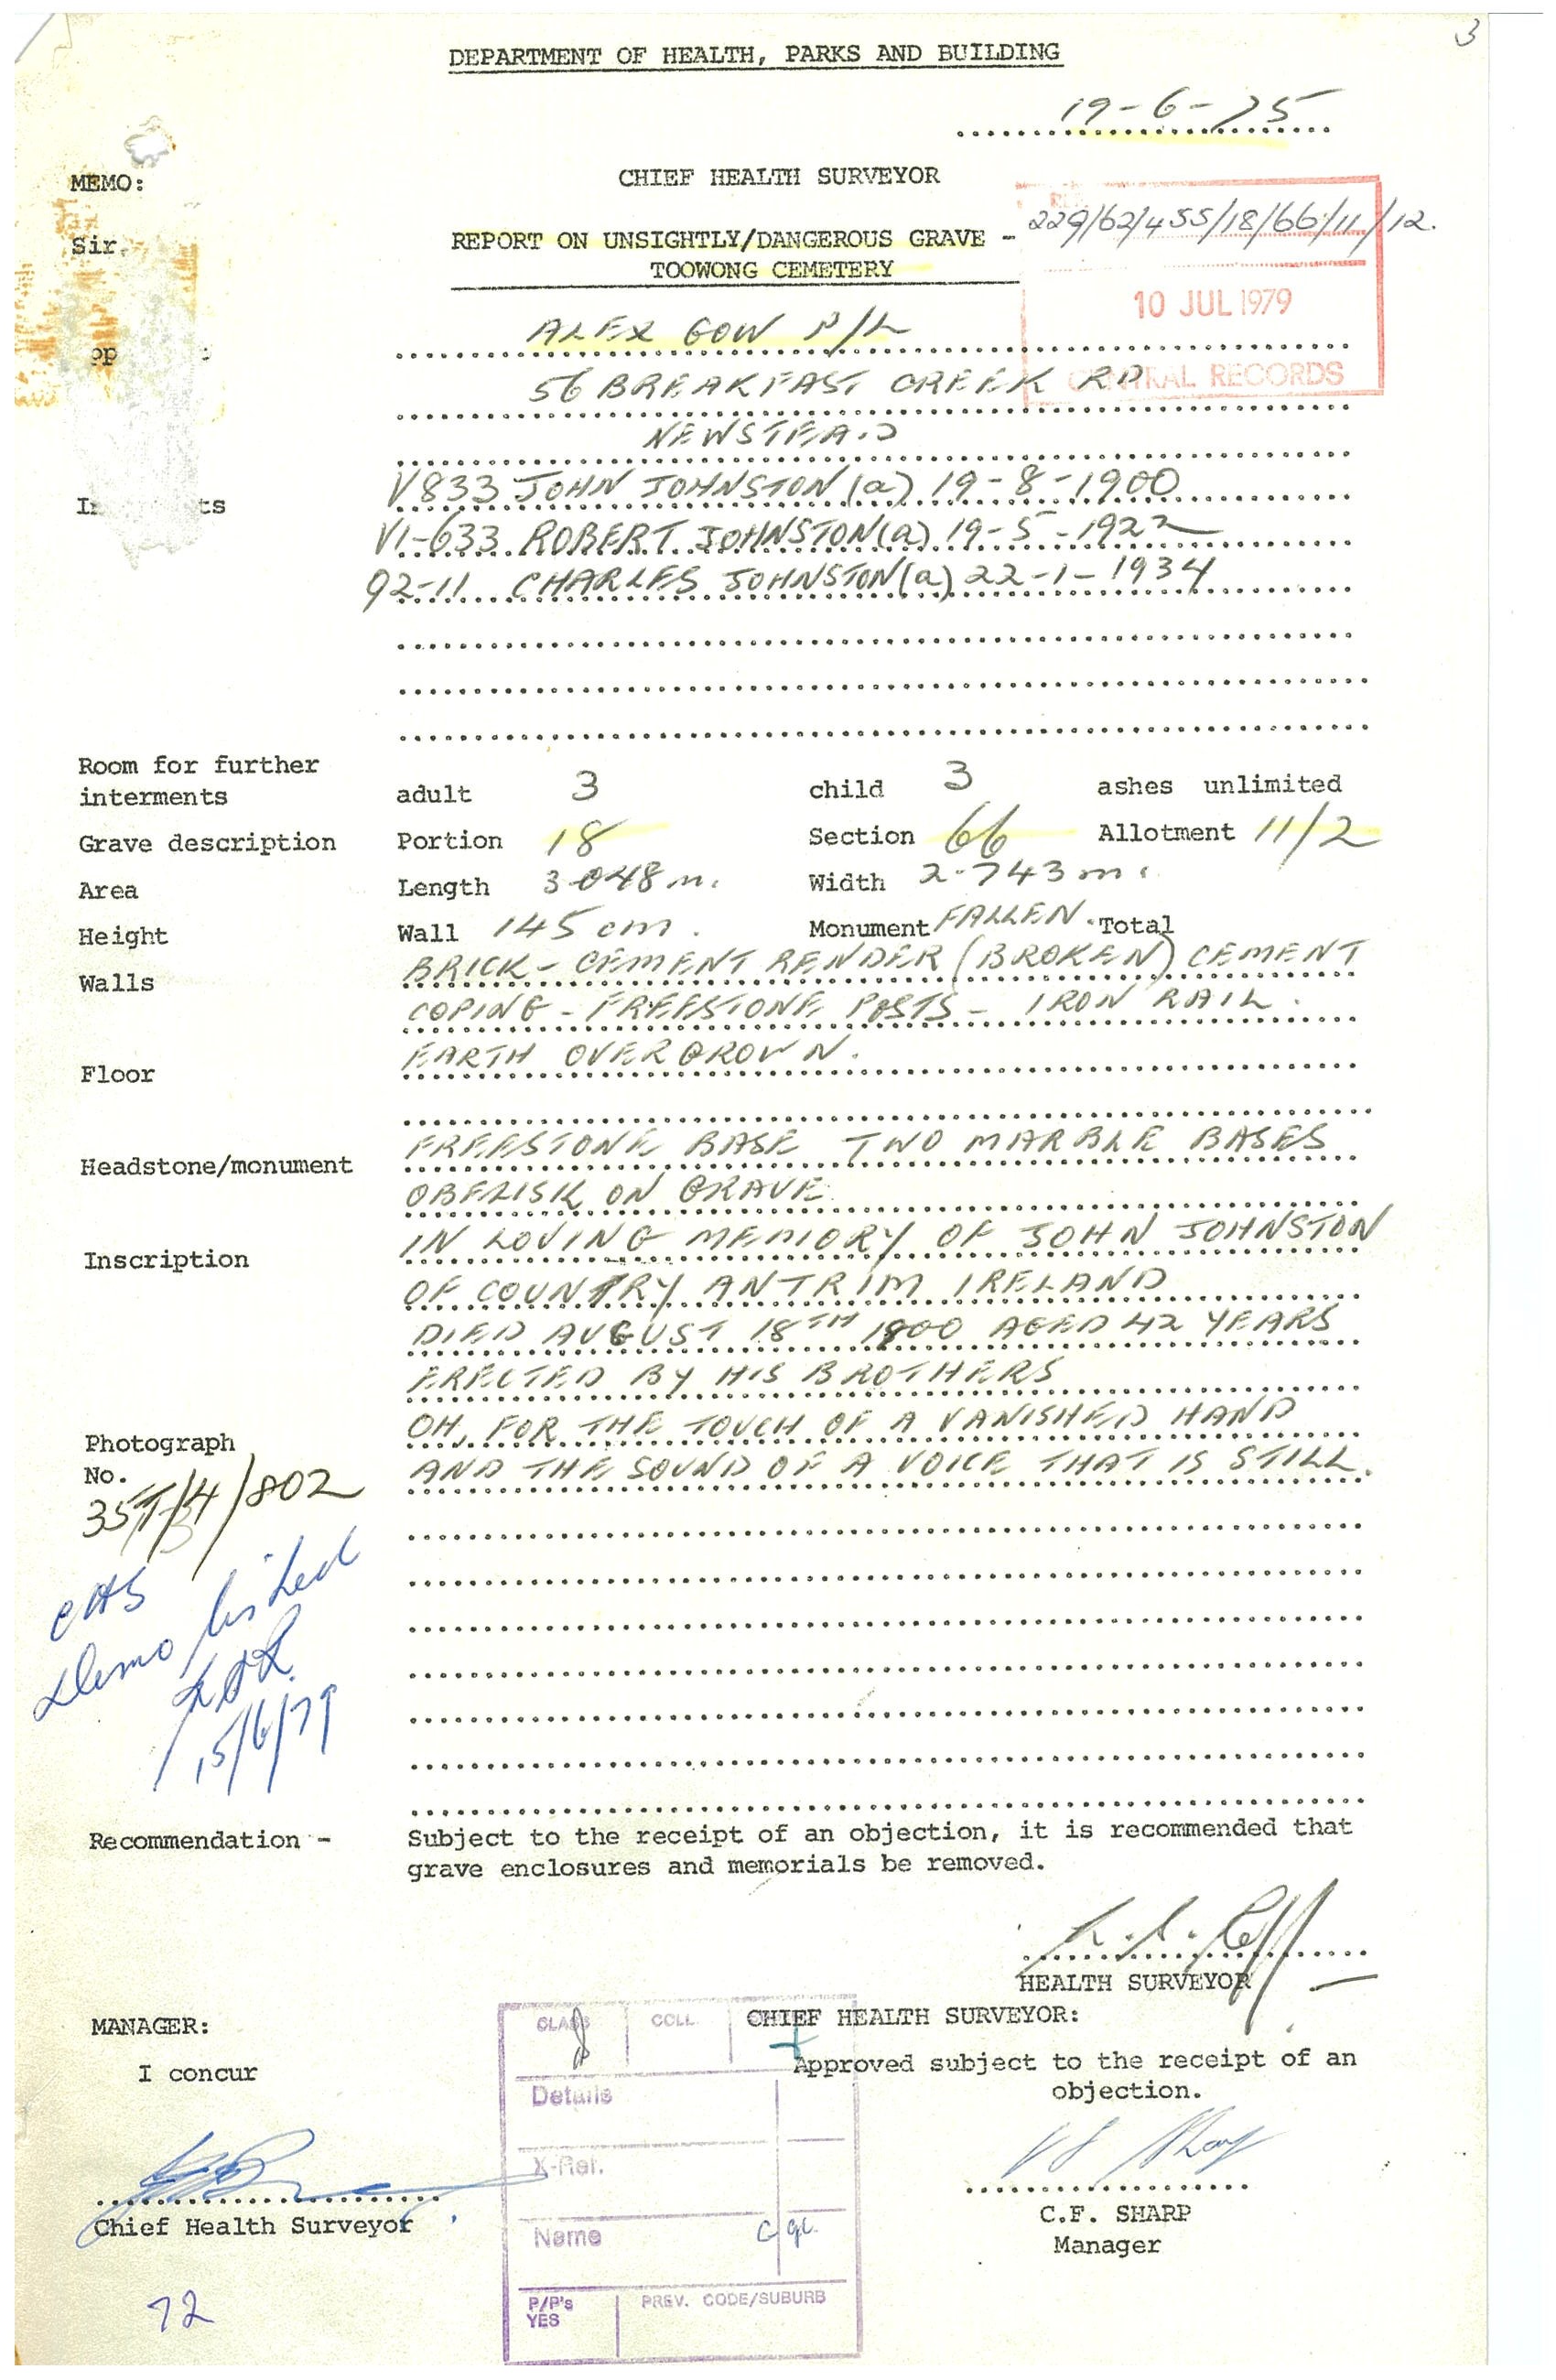 3
DEPARTMENT OF HEALTH, PARKS AND BUILDING
19-6-75
MEMO:
CHIEF HEALTH SURVEYOR
Sir,
REPORT ON UNSIGHTLY/DANGEROUS GRAVE - 229/62/455/18/66/11/12.
TOOWONG CEMETERY
10 JUL 1979
CENTRAL RECORDS
ALEX GOW P/L
56 BREAKFAST CREEK RD
NEWSTEAD
V833 JOHN JOHNSTON (a) 19-8-1900
VI-633 ROBERT JOHNSTON (a) 19-5-1922
92-11 CHARLES JOHNSTON (a) 22-1-1934
Room for further
interments adult 3 child 3 ashes unlimited
Grave description Portion 18 Section 66 Allotment 11/2
Area Length 3.048 m. Width 2.743 m.
Height Wall 145 cm. Monument FALLEN. Total
Walls BRICK - CEMENT RENDER (BROKEN) CEMENT
COPING - FREESTONE POSTS - IRON RAIL.
Floor EARTH OVERGROWN.
Headstone/monument FREESTONE BASE TWO MARBLE BASES
OBELISK ON GRAVE
Inscription IN LOVING MEMORY OF JOHN JOHNSTON
OF COUNTRY ANTRIM IRELAND
DIED AUGUST 18TH 1900 AGED 42 YEARS
ERECTED BY HIS BROTHERS
OH, FOR THE TOUCH OF A VANISHED HAND
AND THE SOUND OF A VOICE THAT IS STILL.
Photograph
No.
/4/802
CHS
Demolished
15/6/79
Recommendation - Subject to the receipt of an objection, it is recommended that
grave enclosures and memorials be removed.
HEALTH SURVEYOR
MANAGER:
CHIEF HEALTH SURVEYOR:
I concur
Approved subject to the receipt of an
objection.
Chief Health Surveyor
C.F. SHARP
Manager
72
CLASS
COLL
Details
X-Ref.
Name
P/P's
YES
PREV. CODE/SUBURB